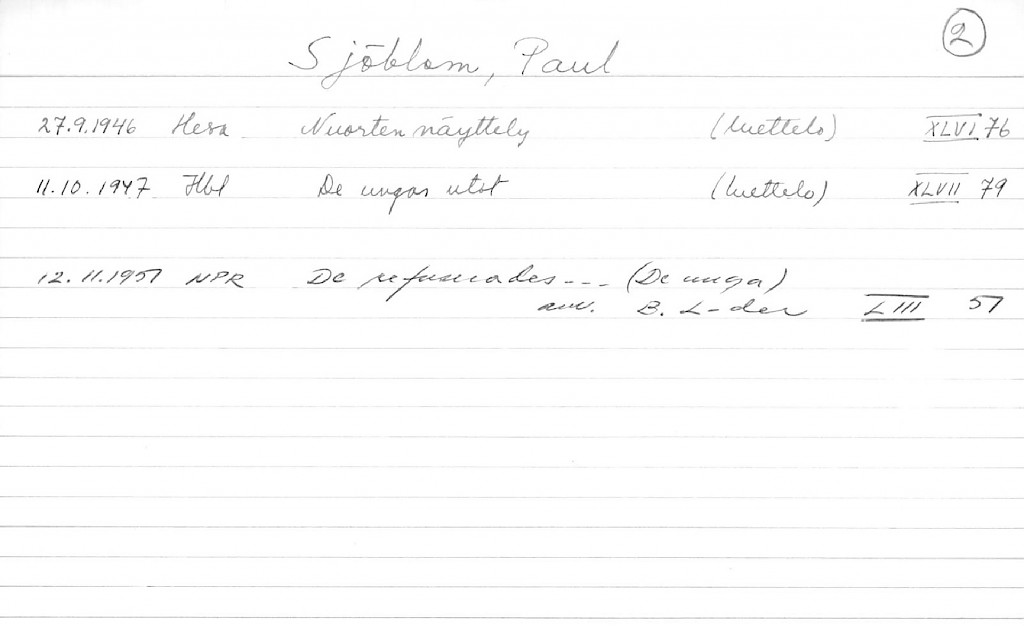 2
Sjöblom, Paul
27.9.1946 Hesa Nuorten näyttely (luettelo) XLVI 76
11.10.1947 Hbl De ungas utst (luettelo) XLVII 79
12.11.1951 NPR De refuserades --- (De unga)
B. L-der LIII 51